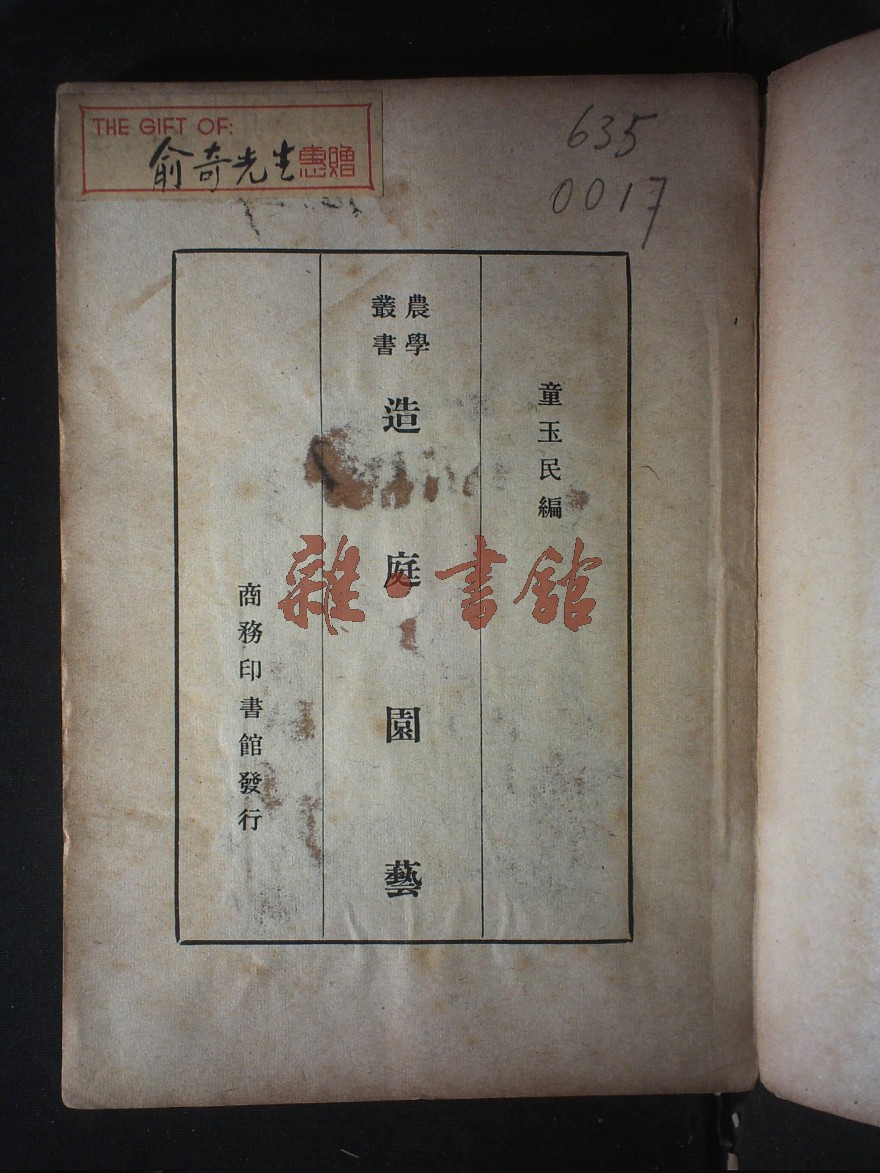 THE GIFT OF:
俞奇先生惠贈
635
0017
童玉民編
農學
叢書
造庭園藝
商務印書館發行
雜·書館